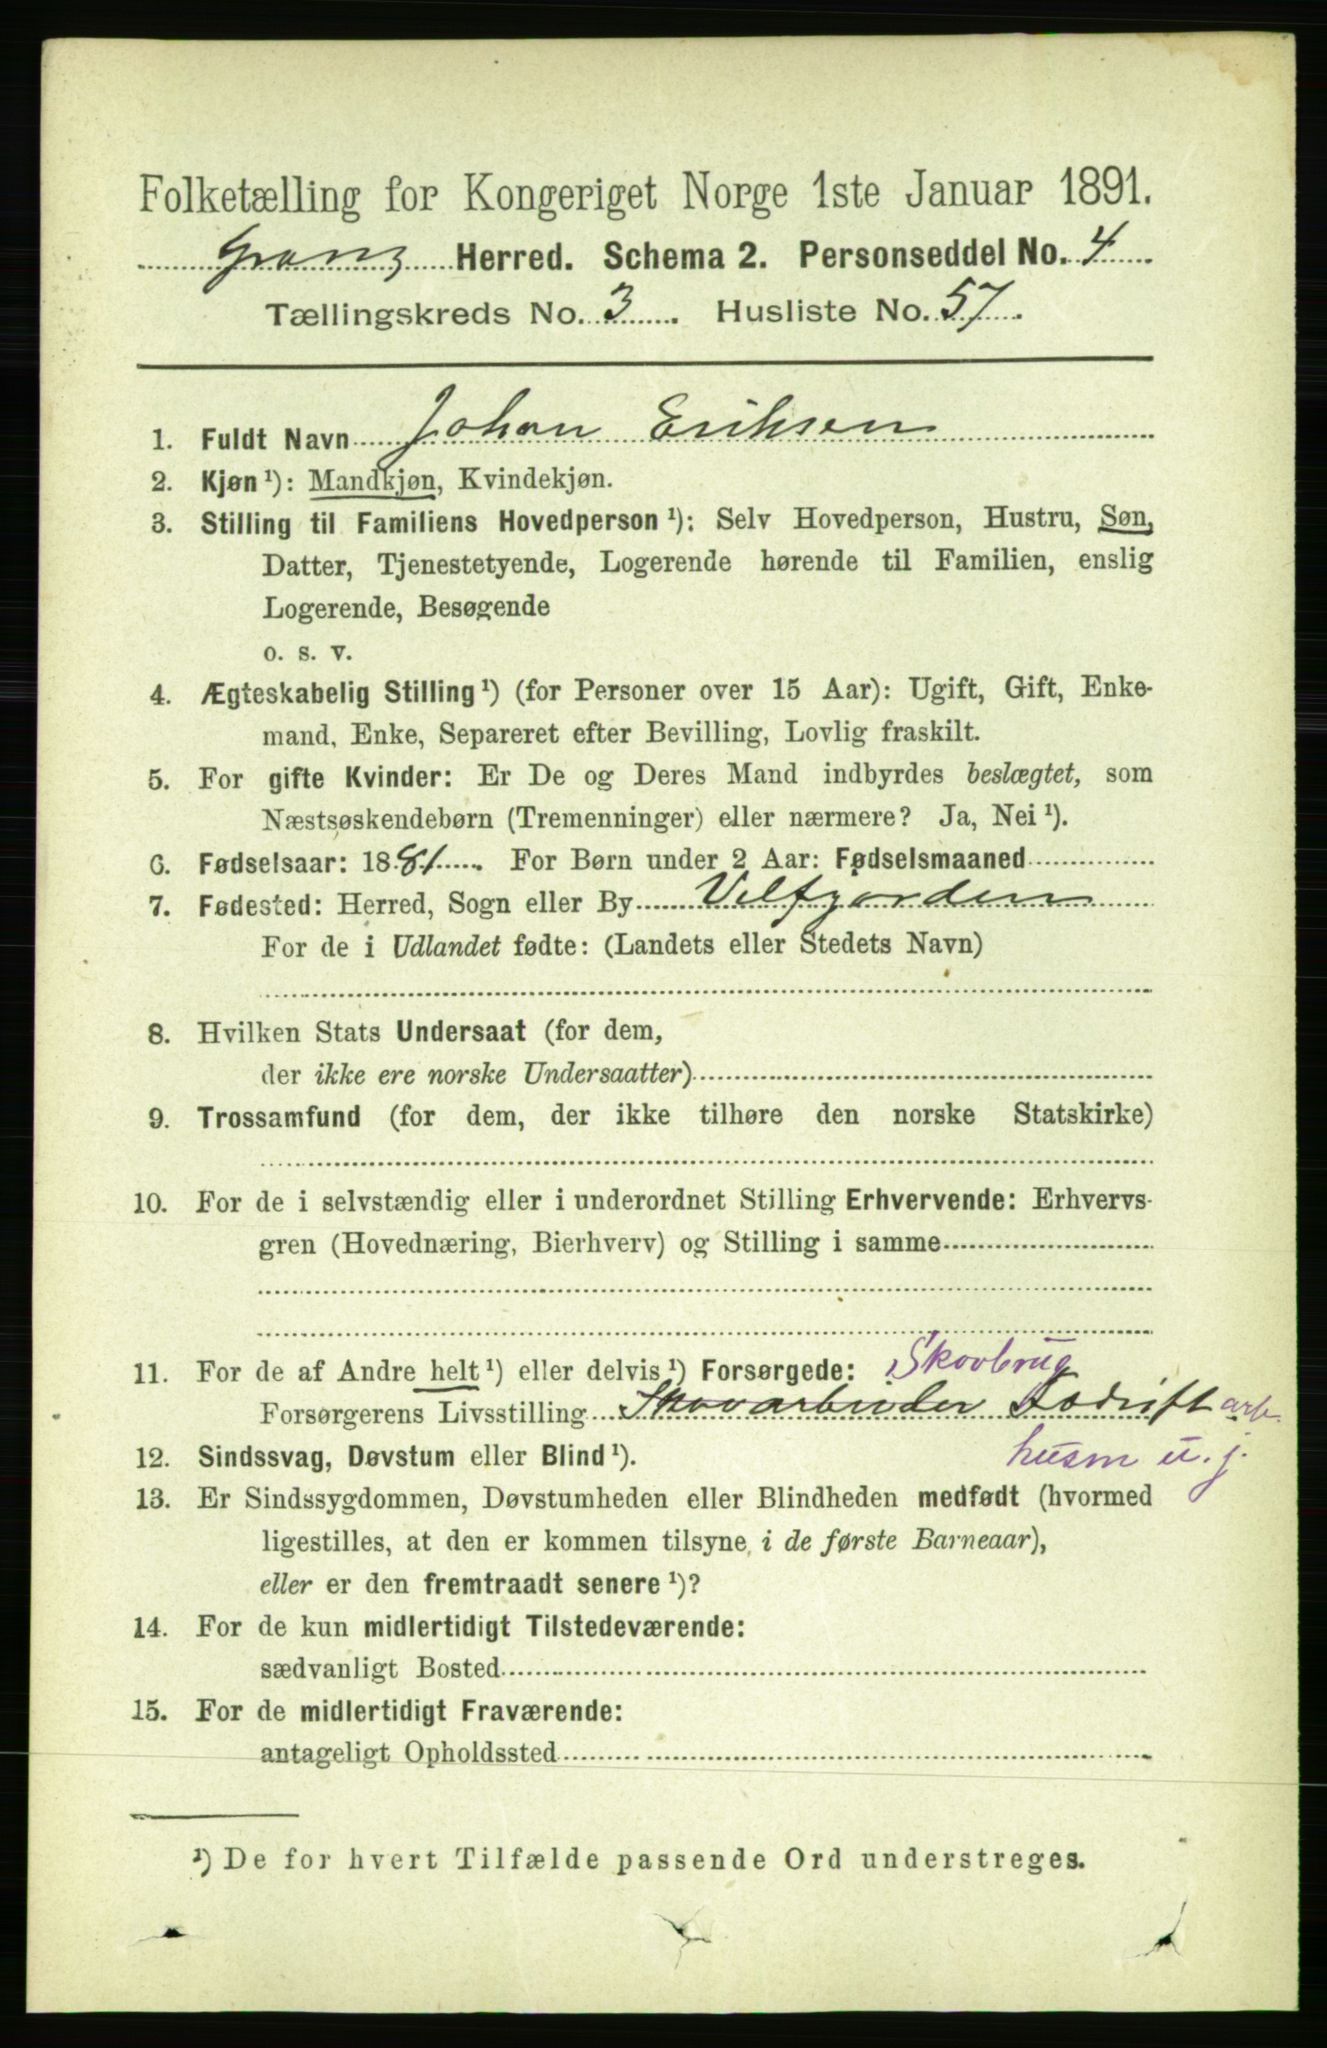 Folketælling for Kongeriget Norge 1ste Januar 1891.
Grong Herred. Schema 2. Personseddel No. 4
Tællingskreds No. 3. Husliste No. 57.
1. Fuldt Navn Johan Eriksen
2. Kjøn ¹): Mandkjøn, Kvindekjøn.
3. Stilling til Familiens Hovedperson ¹): Selv Hovedperson, Hustru, Søn,
Datter, Tjenestetyende, Logerende hørende til Familien, enslig
Logerende, Besøgende
o. s. v.
4. Ægteskabelig Stilling ¹) (for Personer over 15 Aar): Ugift, Gift, Enke-
mand, Enke, Separeret efter Bevilling, Lovlig fraskilt.
5. For gifte Kvinder: Er De og Deres Mand indbyrdes beslægtet, som
Næstsøskendebørn (Tremenninger) eller nærmere? Ja, Nei ¹).
6. Fødselsaar: 1881. For Børn under 2 Aar: Fødselsmaaned
7. Fødested: Herred, Sogn eller By Velfjorden
For de i Udlandet fødte: (Landets eller Stedets Navn)
8. Hvilken Stats Undersaat (for dem,
der ikke ere norske Undersaatter)
9. Trossamfund (for dem, der ikke tilhøre den norske Statskirke)
10. For de i selvstændig eller i underordnet Stilling Erhvervende: Erhvervs-
gren (Hovednæring, Bierhverv) og Stilling i samme
11. For de af Andre helt ¹) eller delvis ¹) Forsørgede: Skovbrug
Forsørgerens Livsstilling Skovarbeider arb.
husm u. j.
12. Sindssvag, Døvstum eller Blind ¹).
13. Er Sindssygdommen, Døvstumheden eller Blindheden medfødt (hvormed
ligestilles, at den er kommen tilsyne i de første Barneaar),
eller er den fremtraadt senere ¹)?
14. For de kun midlertidigt Tilstedeværende:
sædvanligt Bosted
15. For de midlertidigt Fraværende:
antageligt Opholdssted
¹) De for hvert Tilfælde passende Ord understreges.